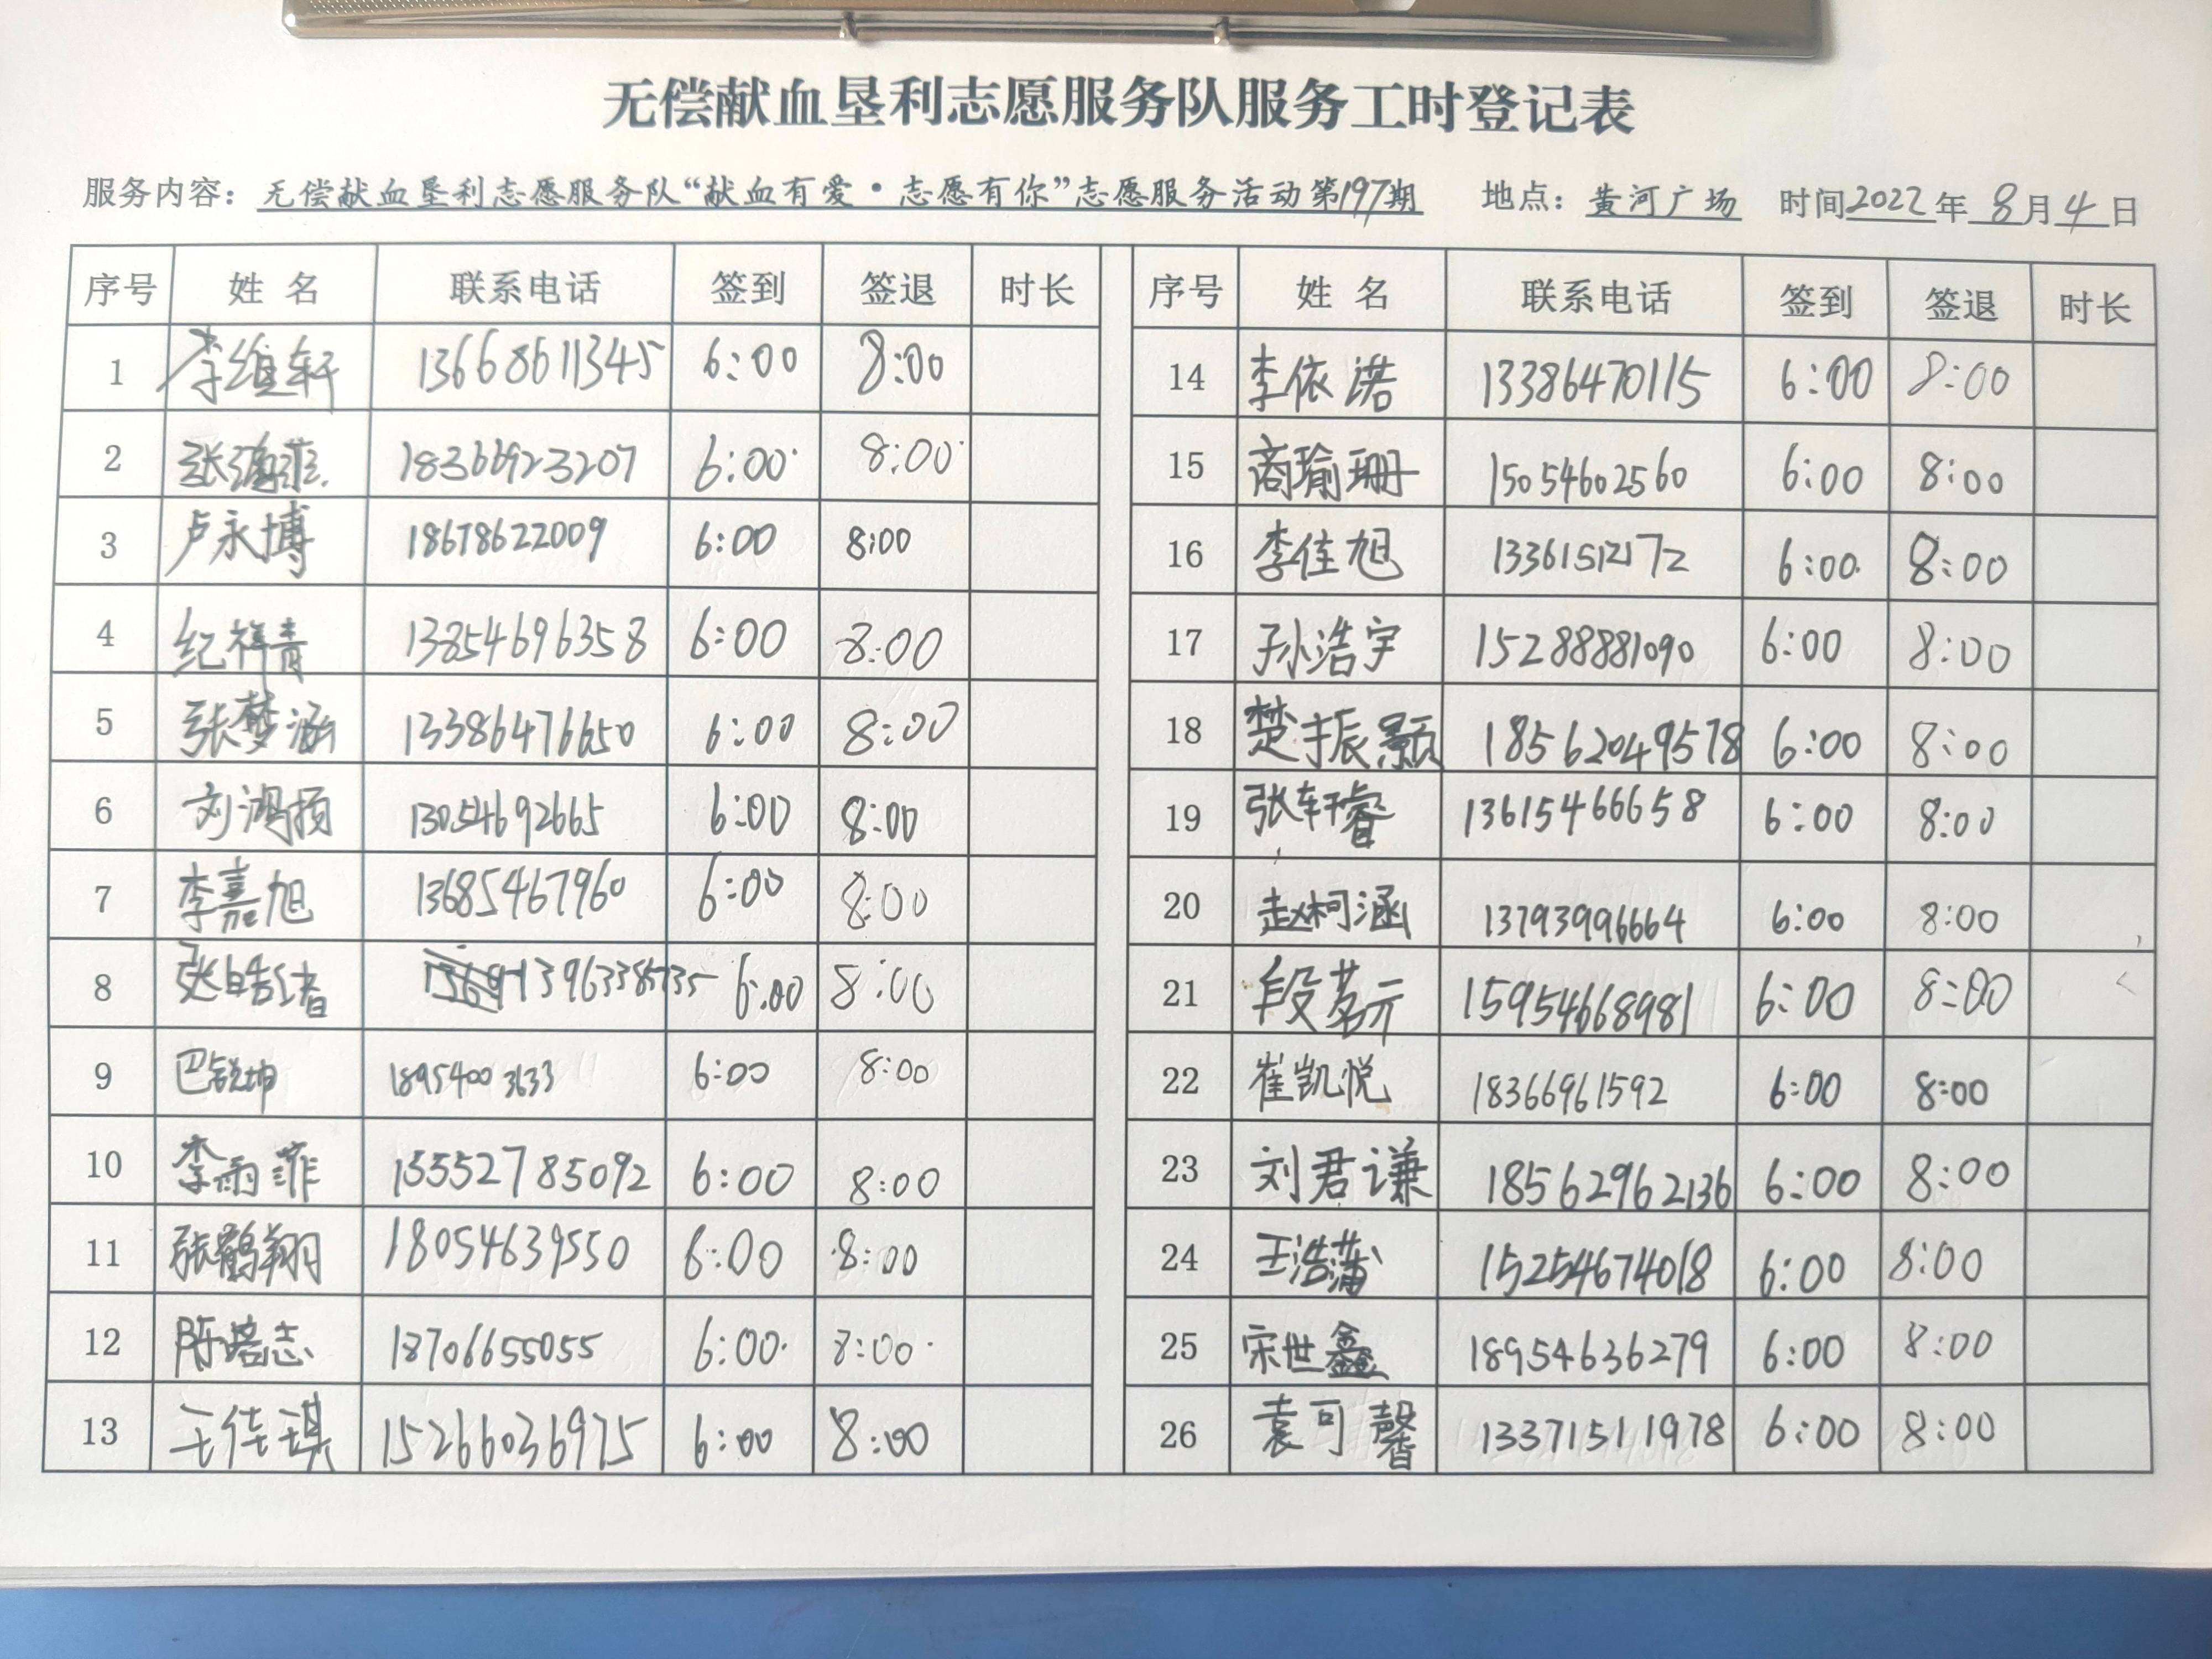 无偿献血垦利志愿服务队服务工时登记表
服务内容：无偿献血垦利志愿服务队“献血有爱·志愿有你”志愿服务活动第197期 地点：黄河广场 时间2022年8月4日
序号 姓名 联系电话 签到 签退 时长 序号 姓名 联系电话 签到 签退 时长
1 李维轩 13668611345 6:00 8:00 14 李依诺 13386470115 6:00 8:00
2 张海菲 18366923207 6:00 8:00 15 商瑜珊 15054602560 6:00 8:00
3 卢永博 18678622009 6:00 8:00 16 李佳旭 13361512172 6:00 8:00
4 纪祥青 13854696358 6:00 8:00 17 孙浩宇 15288881090 6:00 8:00
5 张梦涵 13386476650 6:00 8:00 18 楚振颢 18562049578 6:00 8:00
6 刘鸿 13054692665 6:00 8:00 19 张轩睿 13615466658 6:00 8:00
7 李嘉旭 13685467960 6:00 8:00 20 赵柯涵 13793996664 6:00 8:00
8 张皓 13963385735 6:00 8:00 21 段茗亓 15954668981 6:00 8:00
9 巴锐坤 18954003633 6:00 8:00 22 崔凯悦 18366961592 6:00 8:00
10 李雨菲 15552785092 6:00 8:00 23 刘君谦 18562962136 6:00 8:00
11 张鹤翔 18054639550 6:00 8:00 24 王浩 15254674018 6:00 8:00
12 陈培志 18706655055 6:00 8:00 25 宋世鑫 18954636279 6:00 8:00
13 王佳琪 15266036975 6:00 8:00 26 袁可馨 13371511978 6:00 8:00